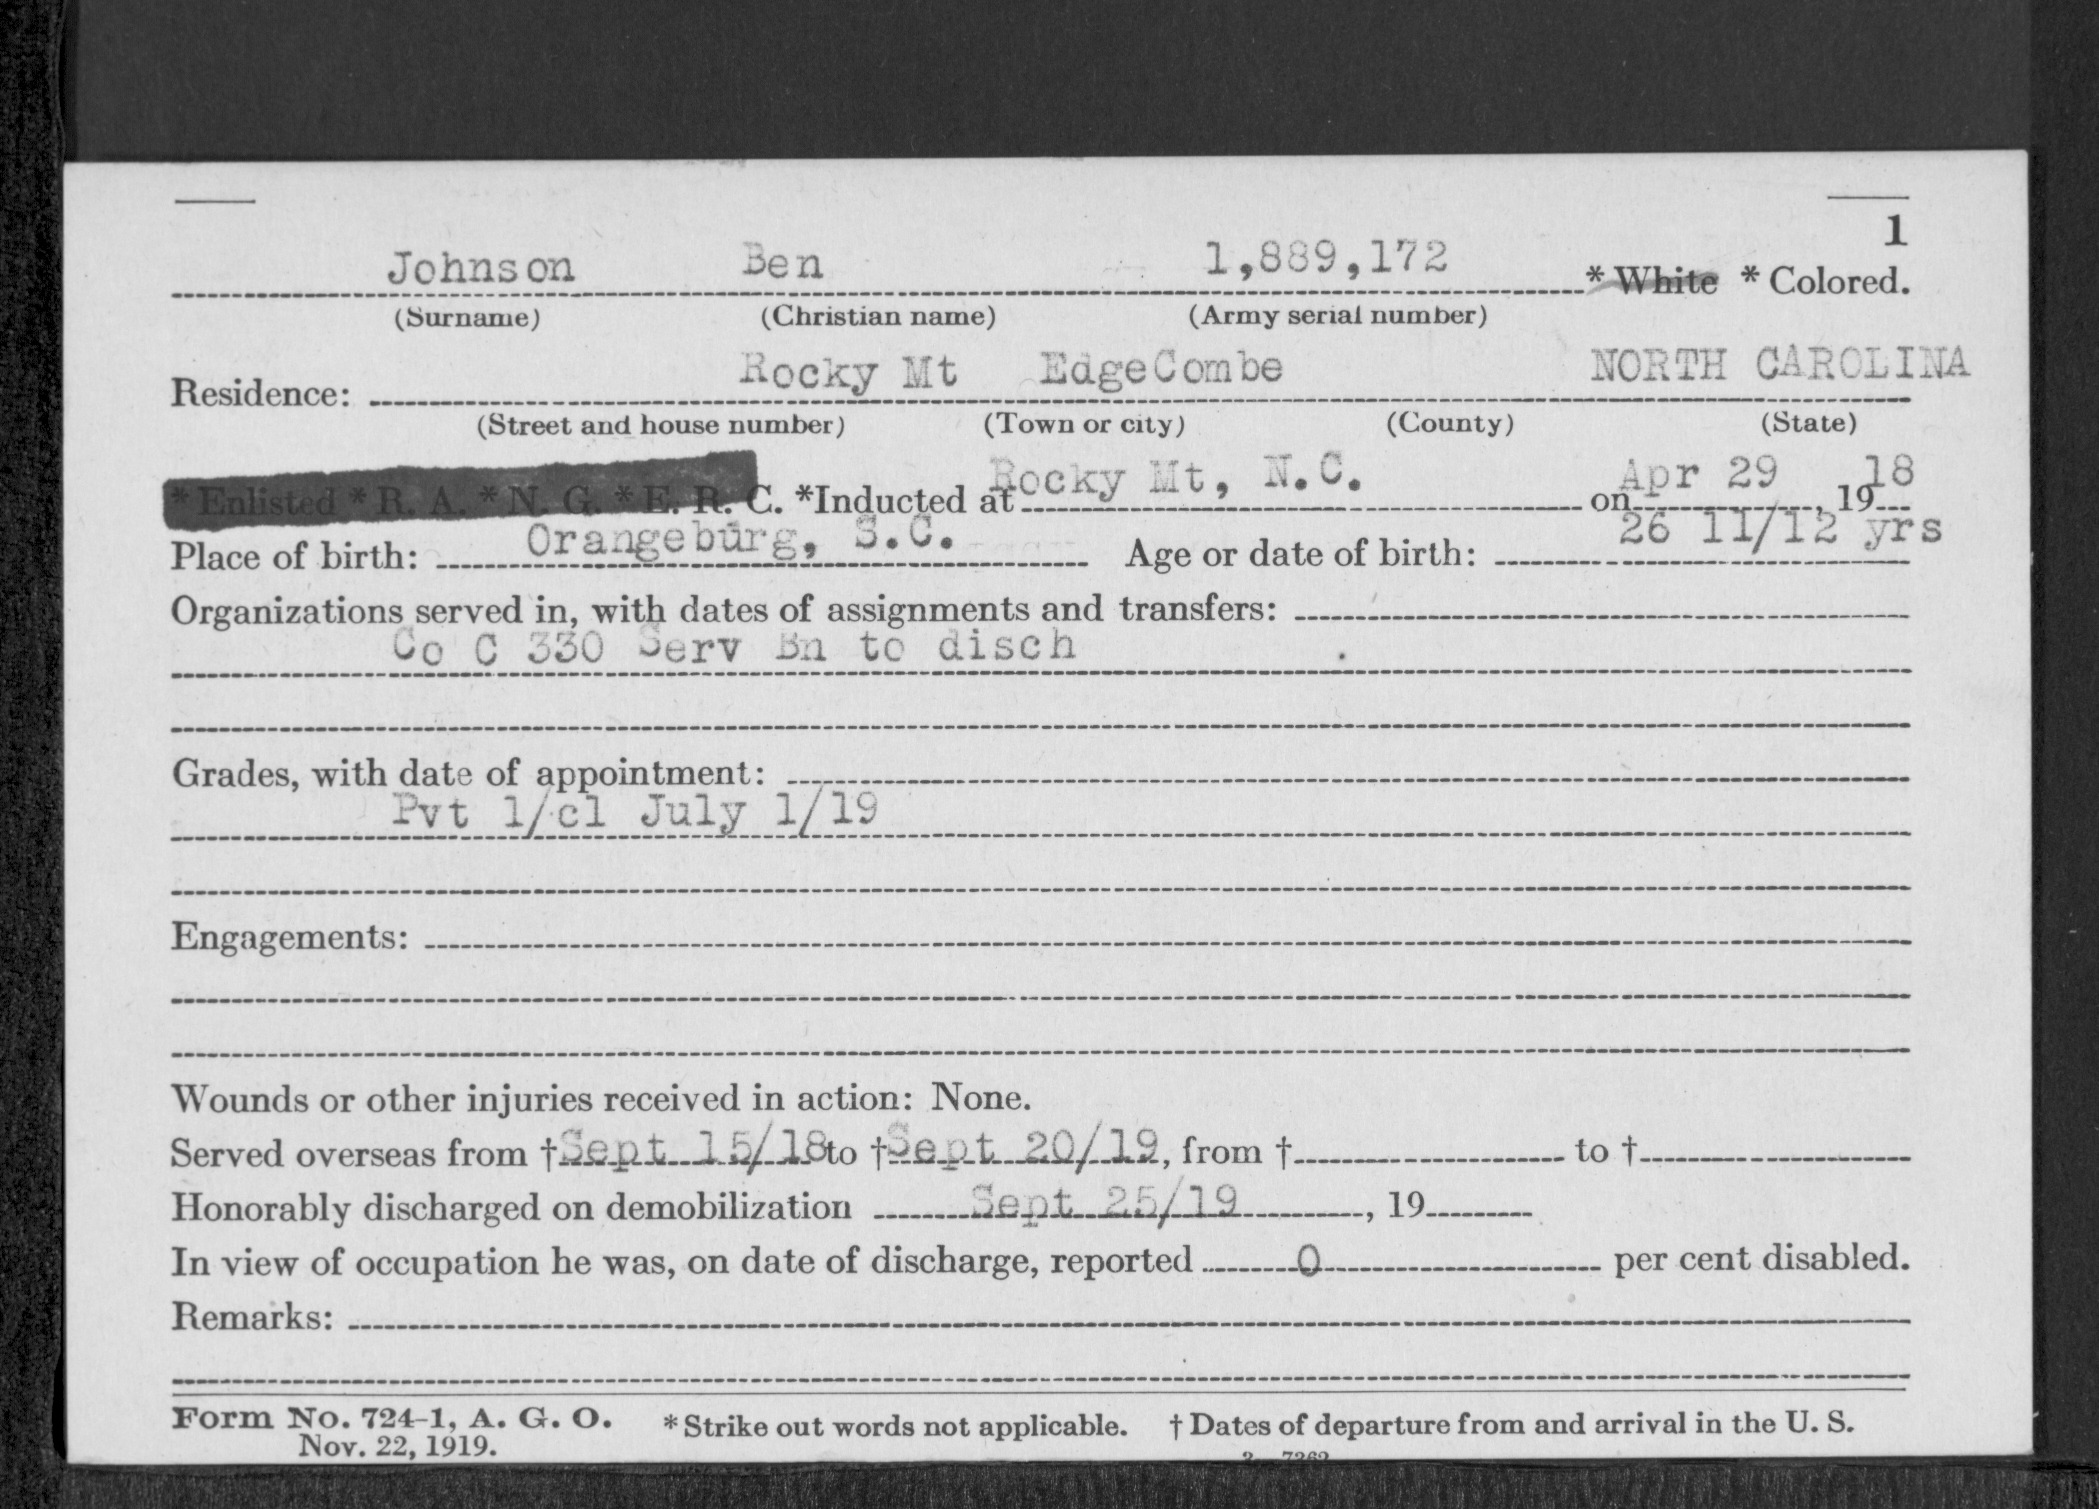 1
Johnson Ben 1,889,172 * White * Colored.
(Surname) (Christian name) (Army serial number)
Residence: Rocky Mt EdgeCombe NORTH CAROLINA
(Street and house number) (Town or city) (County) (State)
* Enlisted * R. A. * N. G. * E. R. C. *Inducted at Rocky Mt, N.C. on Apr 29, 1918
Place of birth: Orangeburg, S.C. Age or date of birth: 26 11/12 yrs
Organizations served in, with dates of assignments and transfers:
Co C 330 Serv Bn to disch
Grades, with date of appointment:
Pvt 1/cl July 1/19
Engagements:
Wounds or other injuries received in action: None.
Served overseas from †Sept 15/18 to †Sept 20/19, from † to †
Honorably discharged on demobilization Sept 25/19, 19
In view of occupation he was, on date of discharge, reported 0 per cent disabled.
Remarks:
Form No. 724-1, A. G. O. * Strike out words not applicable. † Dates of departure from and arrival in the U. S.
Nov. 22, 1919.